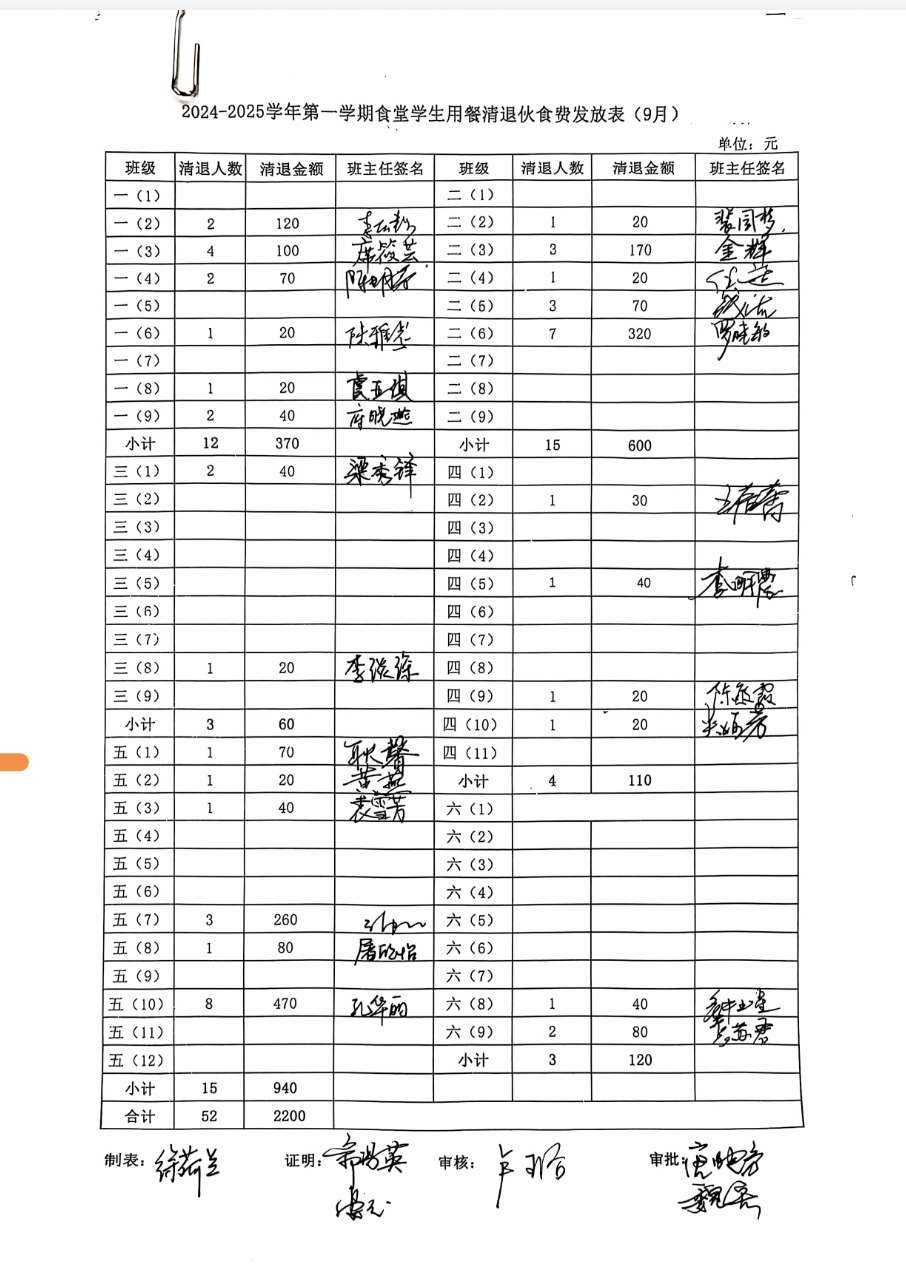 2024-2025学年第一学期食堂学生用餐清退伙食费发放表（9月）
单位：元
班级 清退人数 清退金额 班主任签名 班级 清退人数 清退金额 班主任签名
一（1） 二（1）
一（2） 2 120 二（2） 1 20
一（3） 4 100 席筱芸 二（3） 3 170 金辉
一（4） 2 70 二（4） 1 20
一（5） 二（5） 3 70
一（6） 1 20 陆雅 二（6） 7 320 罗晓敏
一（7） 二（7）
一（8） 1 20 虞亚琪 二（8）
一（9） 2 40 府晓燕 二（9）
小计 12 370 小计 15 600
三（1） 2 40 梁秀锋 四（1）
三（2） 四（2） 1 30
三（3） 四（3）
三（4） 四（4）
三（5） 四（5） 1 40 李明霞
三（6） 四（6）
三（7） 四（7）
三（8） 1 20 李 四（8）
三（9） 四（9） 1 20
小计 3 60 四（10） 1 20
五（1） 1 70 耿馨 四（11）
五（2） 1 20 黄燕 小计 4 110
五（3） 1 40 袁雪芳 六（1）
五（4） 六（2）
五（5） 六（3）
五（6） 六（4）
五（7） 3 260 六（5）
五（8） 1 80 六（6）
五（9） 六（7）
五（10） 8 470 孔华丽 六（8） 1 40
五（11） 六（9） 2 80
五（12） 小计 3 120
小计 15 940
合计 52 2200
制表： 徐荷兰 证明： 审核： 审批：